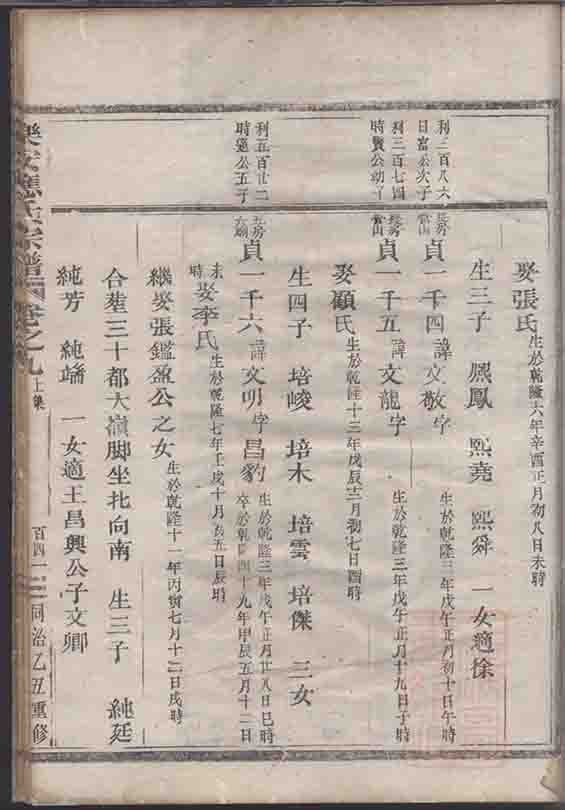 娶張氏生於乾隆六年辛酉正月初八日未時
生三子 熈鳳 熙堯 熙舜 一女適徐
利三百八六
日富公次子
長房
常山
貞一千四諱文敬字生於乾隆三年戊午正月初十日午時
利三百七四
時賢公幼子
長房
常山
貞一千五諱文龍字生於乾隆三年戊午正月十九日子時
娶顧氏生於乾隆十三年戊辰十二月初七日酉時
生四子 培峻 培木 培雲 培傑 三女
利五百廿二
時 公五子
五房
貞一千六諱文明字昌豹生於乾隆三年戊午正月廿八日巳時
卒於乾隆四十九年甲辰五月十二日
未時
娶李氏生於乾隆七年壬戌十月初五日辰時
繼娶張鑑盈公之女生於乾隆十一年丙寅七月十二日戌時
合塟三十都大嶺脚坐北向南 生三子 純廷
純芳 純端 一女適王昌興公子文卿
樂安 氏宗譜 卷之九上集 百四一 同治乙丑重修